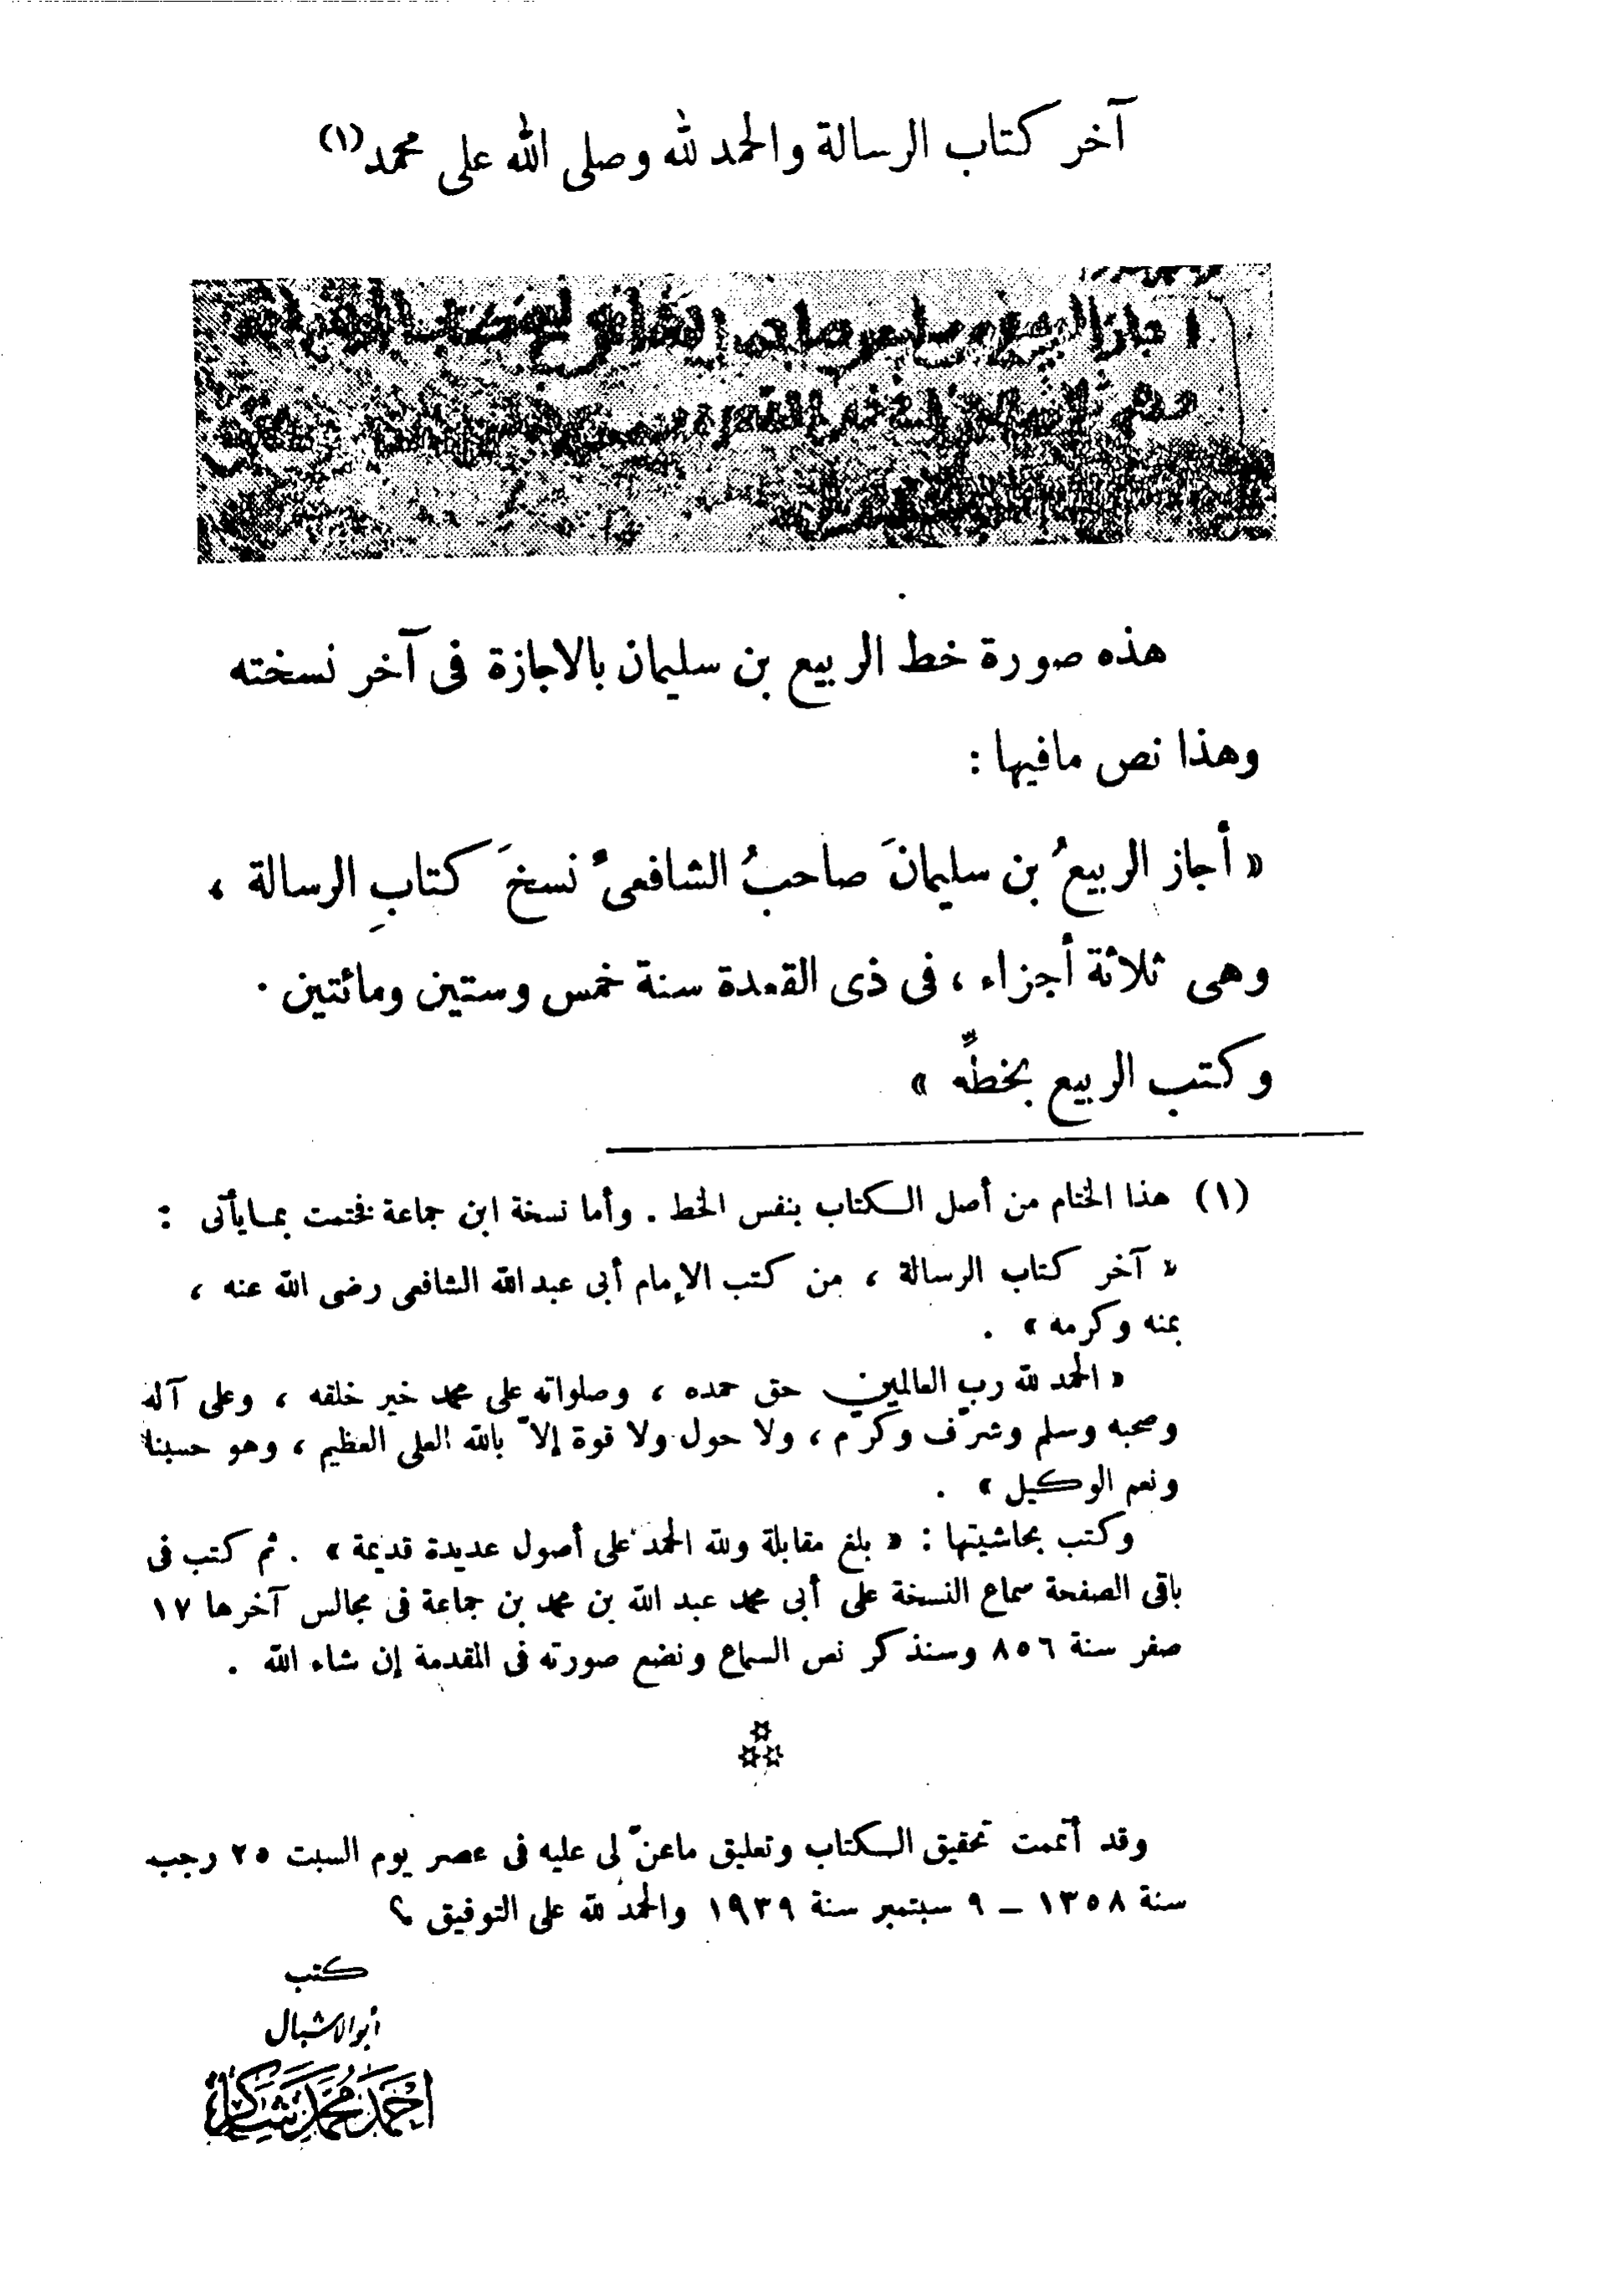 آخر كتاب الرسالة والحمد لله وصلى الله على محمد(١)
هذه صورة خط الربيع بن سليمان بالاجازة فى آخر نسخته
وهذا نص مافيها :
« أجاز الربيعُ بن سليمانَ صاحبُ الشافعىِّ نسخَ كتابِ الرسالة ،
وهى ثلاثة أجزاء ، فى ذى القعدة سنة خمس وستين ومائتين .
وكتب الربيع بخطِّه »
(١) هذا الختام من أصل الكتاب بنفس الخط . وأما نسخة ابن جماعة فختمت بمايأتى :
« آخر كتاب الرسالة ، من كتب الإمام أبى عبد الله الشافعى رضى الله عنه ،
بمنه وكرمه » .
« الحمد لله رب العالمين حق حمده ، وصلواته على محمد خير خلقه ، وعلى آله
وصحبه وسلم وشرّف وكرّم ، ولا حول ولا قوة إلاّ بالله العلى العظيم ، وهو حسبنا
ونعم الوكيل » .
وكتب بحاشيتها : « بلغ مقابلة ولله الحمد على أصول عديدة قديمة » . ثم كتب فى
باقى الصفحة سماع النسخة على أبى محمد عبد الله بن محمد بن جماعة فى مجالس آخرها ١٧
صفر سنة ٨٥٦ وسنذكر نص السماع ونضع صورته فى المقدمة إن شاء الله .
وقد أتممت تحقيق الكتاب وتعليق ماعنّ لى عليه فى عصر يوم السبت ٢٥ رجب
سنة ١٣٥٨ – ٩ سبتمبر سنة ١٩٣٩ والحمد لله على التوفيق
كتب
أبو الاشبال
أحمد محمد شاكر